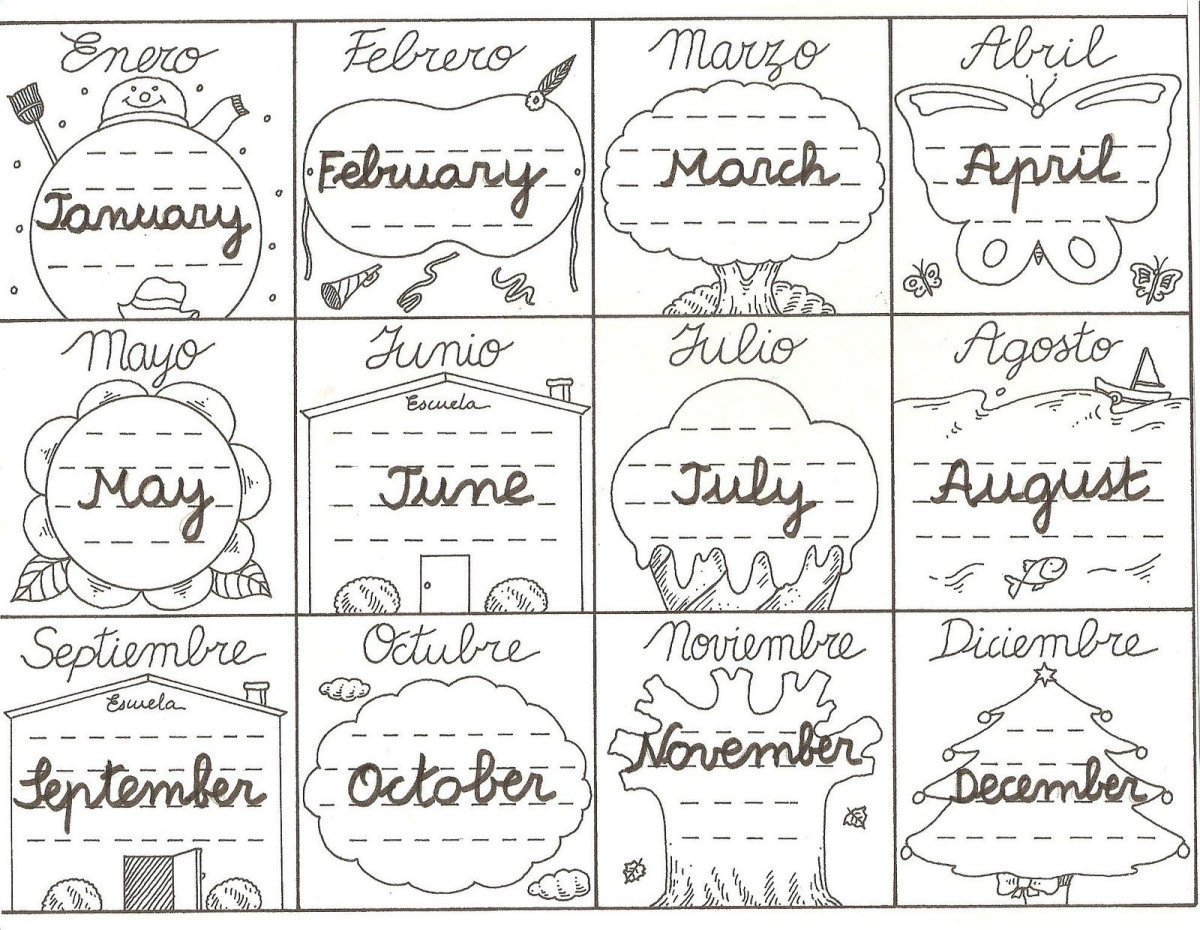 Enero Febrero Marzo Abril
January February March April
Mayo Junio Julio Agosto
Escuela
May June July August
Septiembre Octubre Noviembre Diciembre
Escuela
September October November December